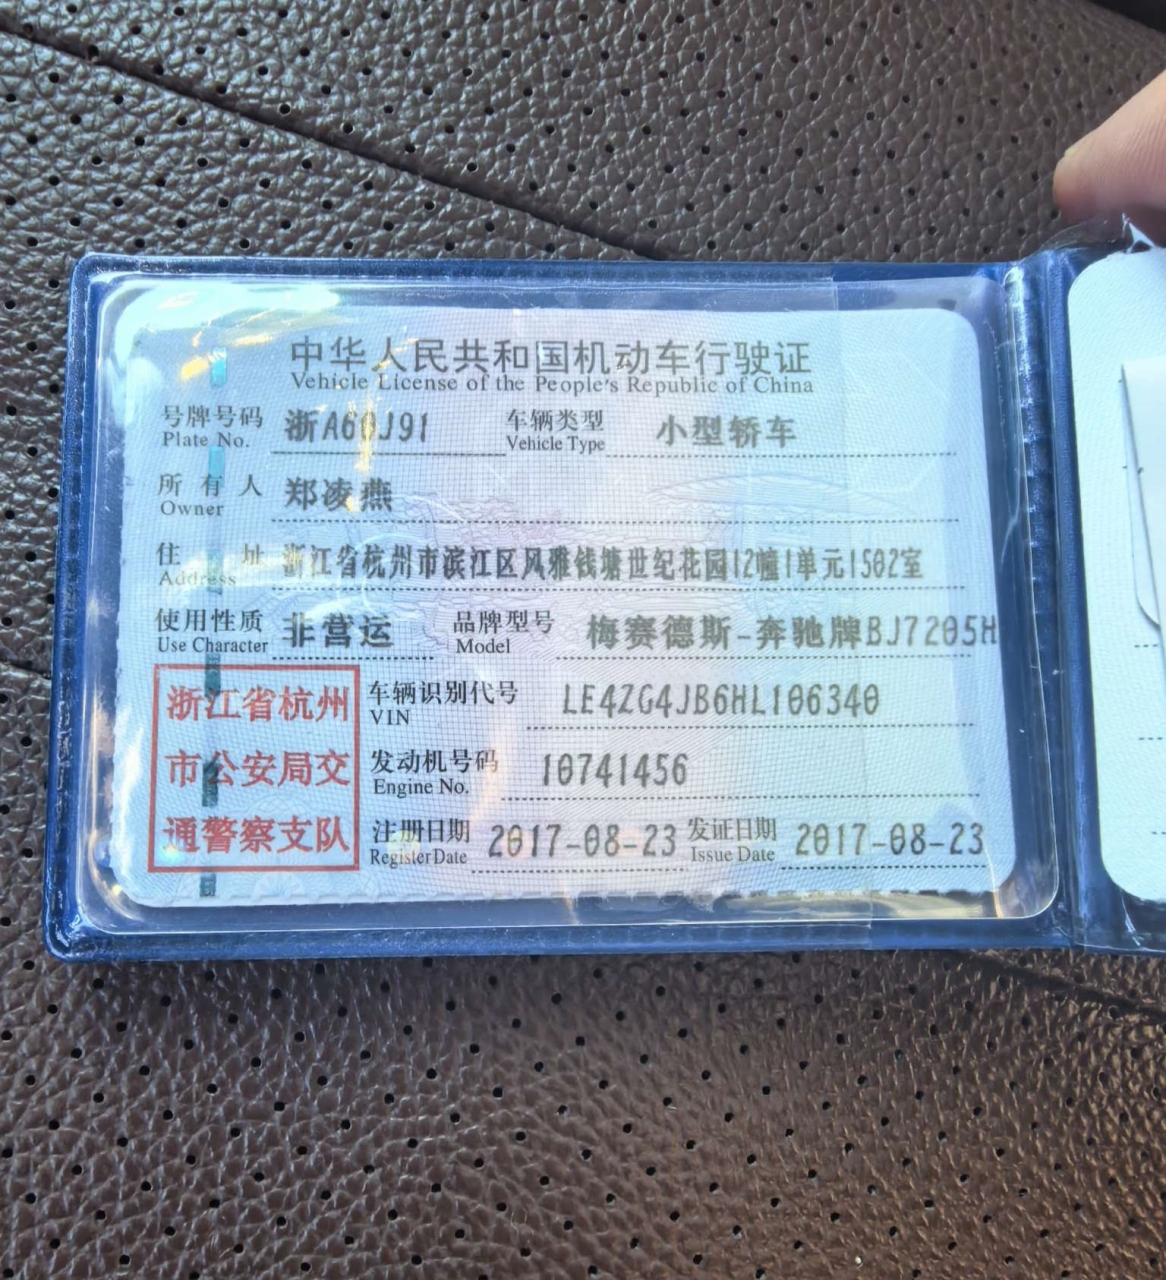 中华人民共和国机动车行驶证
Vehicle License of the People's Republic of China
号牌号码 浙A60J91 车辆类型 小型轿车
Plate No. Vehicle Type
所有人 郑凌燕
Owner
住址 浙江省杭州市滨江区风雅钱塘世纪花园12幢1单元1502室
Address
使用性质 非营运 品牌型号 梅赛德斯-奔驰牌BJ7205H
Use Character Model
浙江省杭州 车辆识别代号 LE4ZG4JB6HL106340
VIN
市公安局交 发动机号码 10741456
Engine No.
通警察支队 注册日期 2017-08-23 发证日期 2017-08-23
Register Date Issue Date